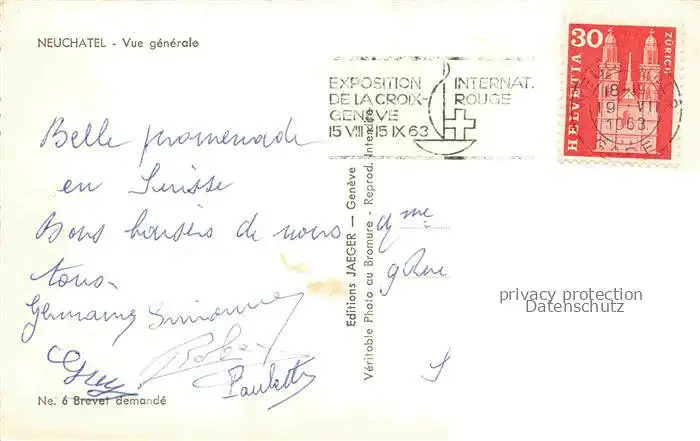 NEUCHATEL - Vue générale
EXPOSITION INTERNAT.
DE LA CROIX-ROUGE
GENÈVE
15 VIII-15 IX 63
30
HELVETIA
ZÜRICH
18-
19 VII
1963
Belle promenade
en Suisse
Bons baisers de nous
tous.
Germaine Simonne
Guy
Paulette
Ne. 6 Brevet demandé
Editions JAEGER — Genève
Véritable Photo au Bromure - Reprod. Interdite
privacy protection
Datenschutz